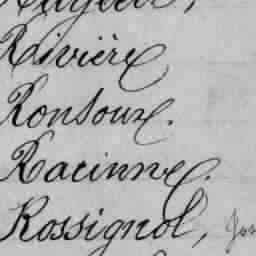 Rivière
Ronsoux.
Racinne.
Rossignol,